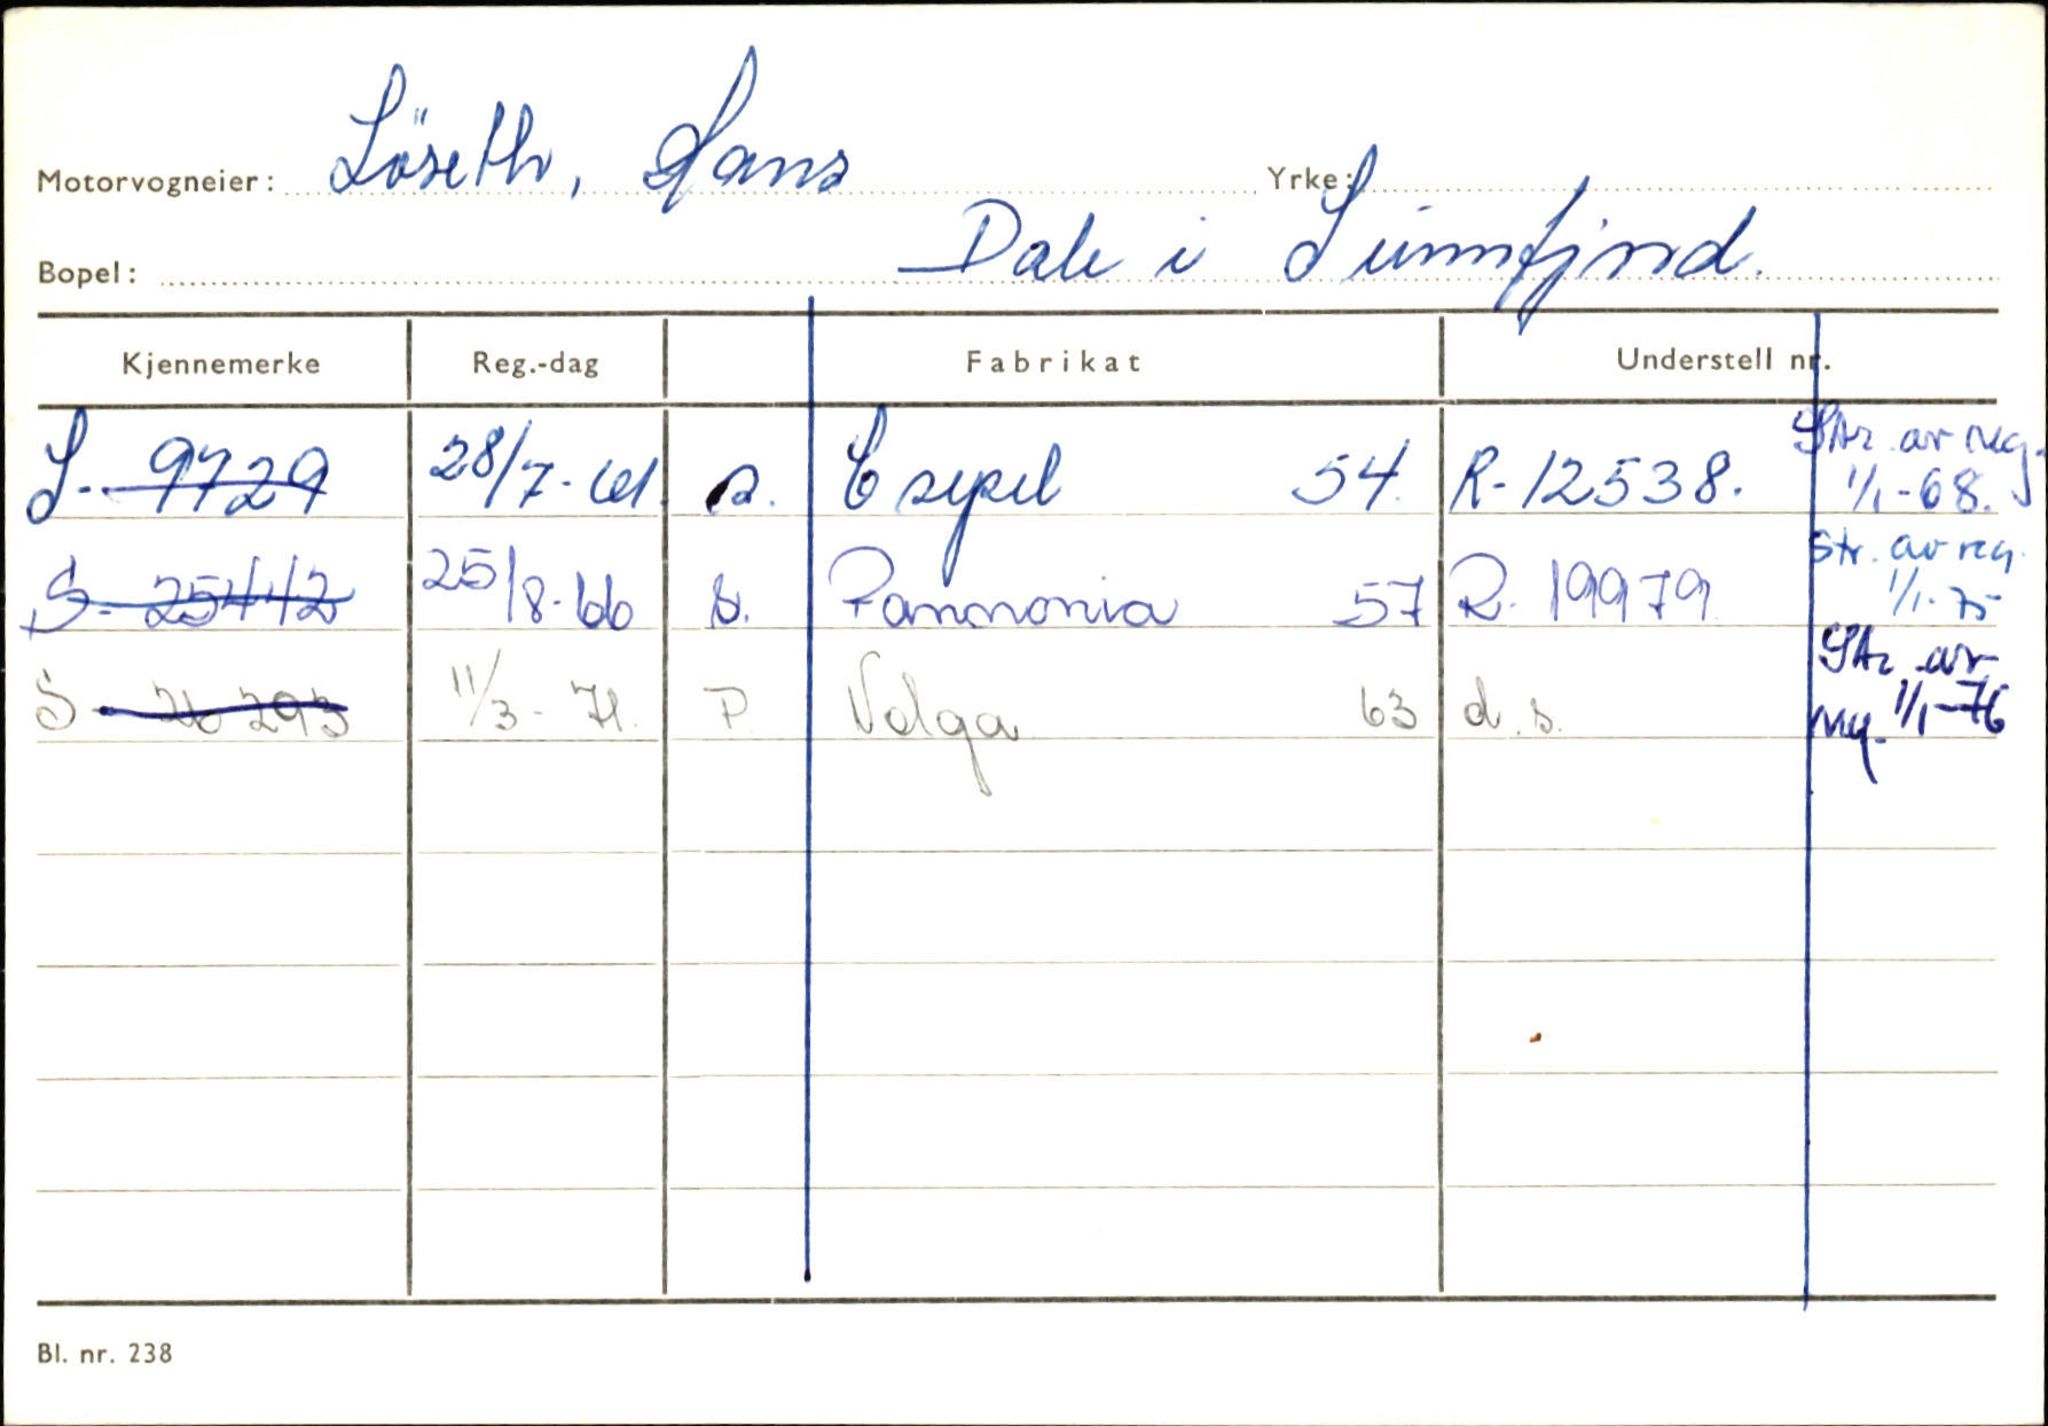 Motorvogneier: Löseth, Hans Yrke:
Bopel: Dale i Sunnfjord.
Kjennemerke Reg.-dag Fabrikat Understell nr.
S- 9729 28/7-61 s. Csepel 54. R-12538. Str. av reg. 1/1-68.
S- 25442 25/8-66 s. Pannonia 57 R- 19979 Str. av reg. 1/1-75
S- 26293 11/3-71. P. Volga 63 d.s. Str. av reg. 1/1-76
Bl. nr. 238